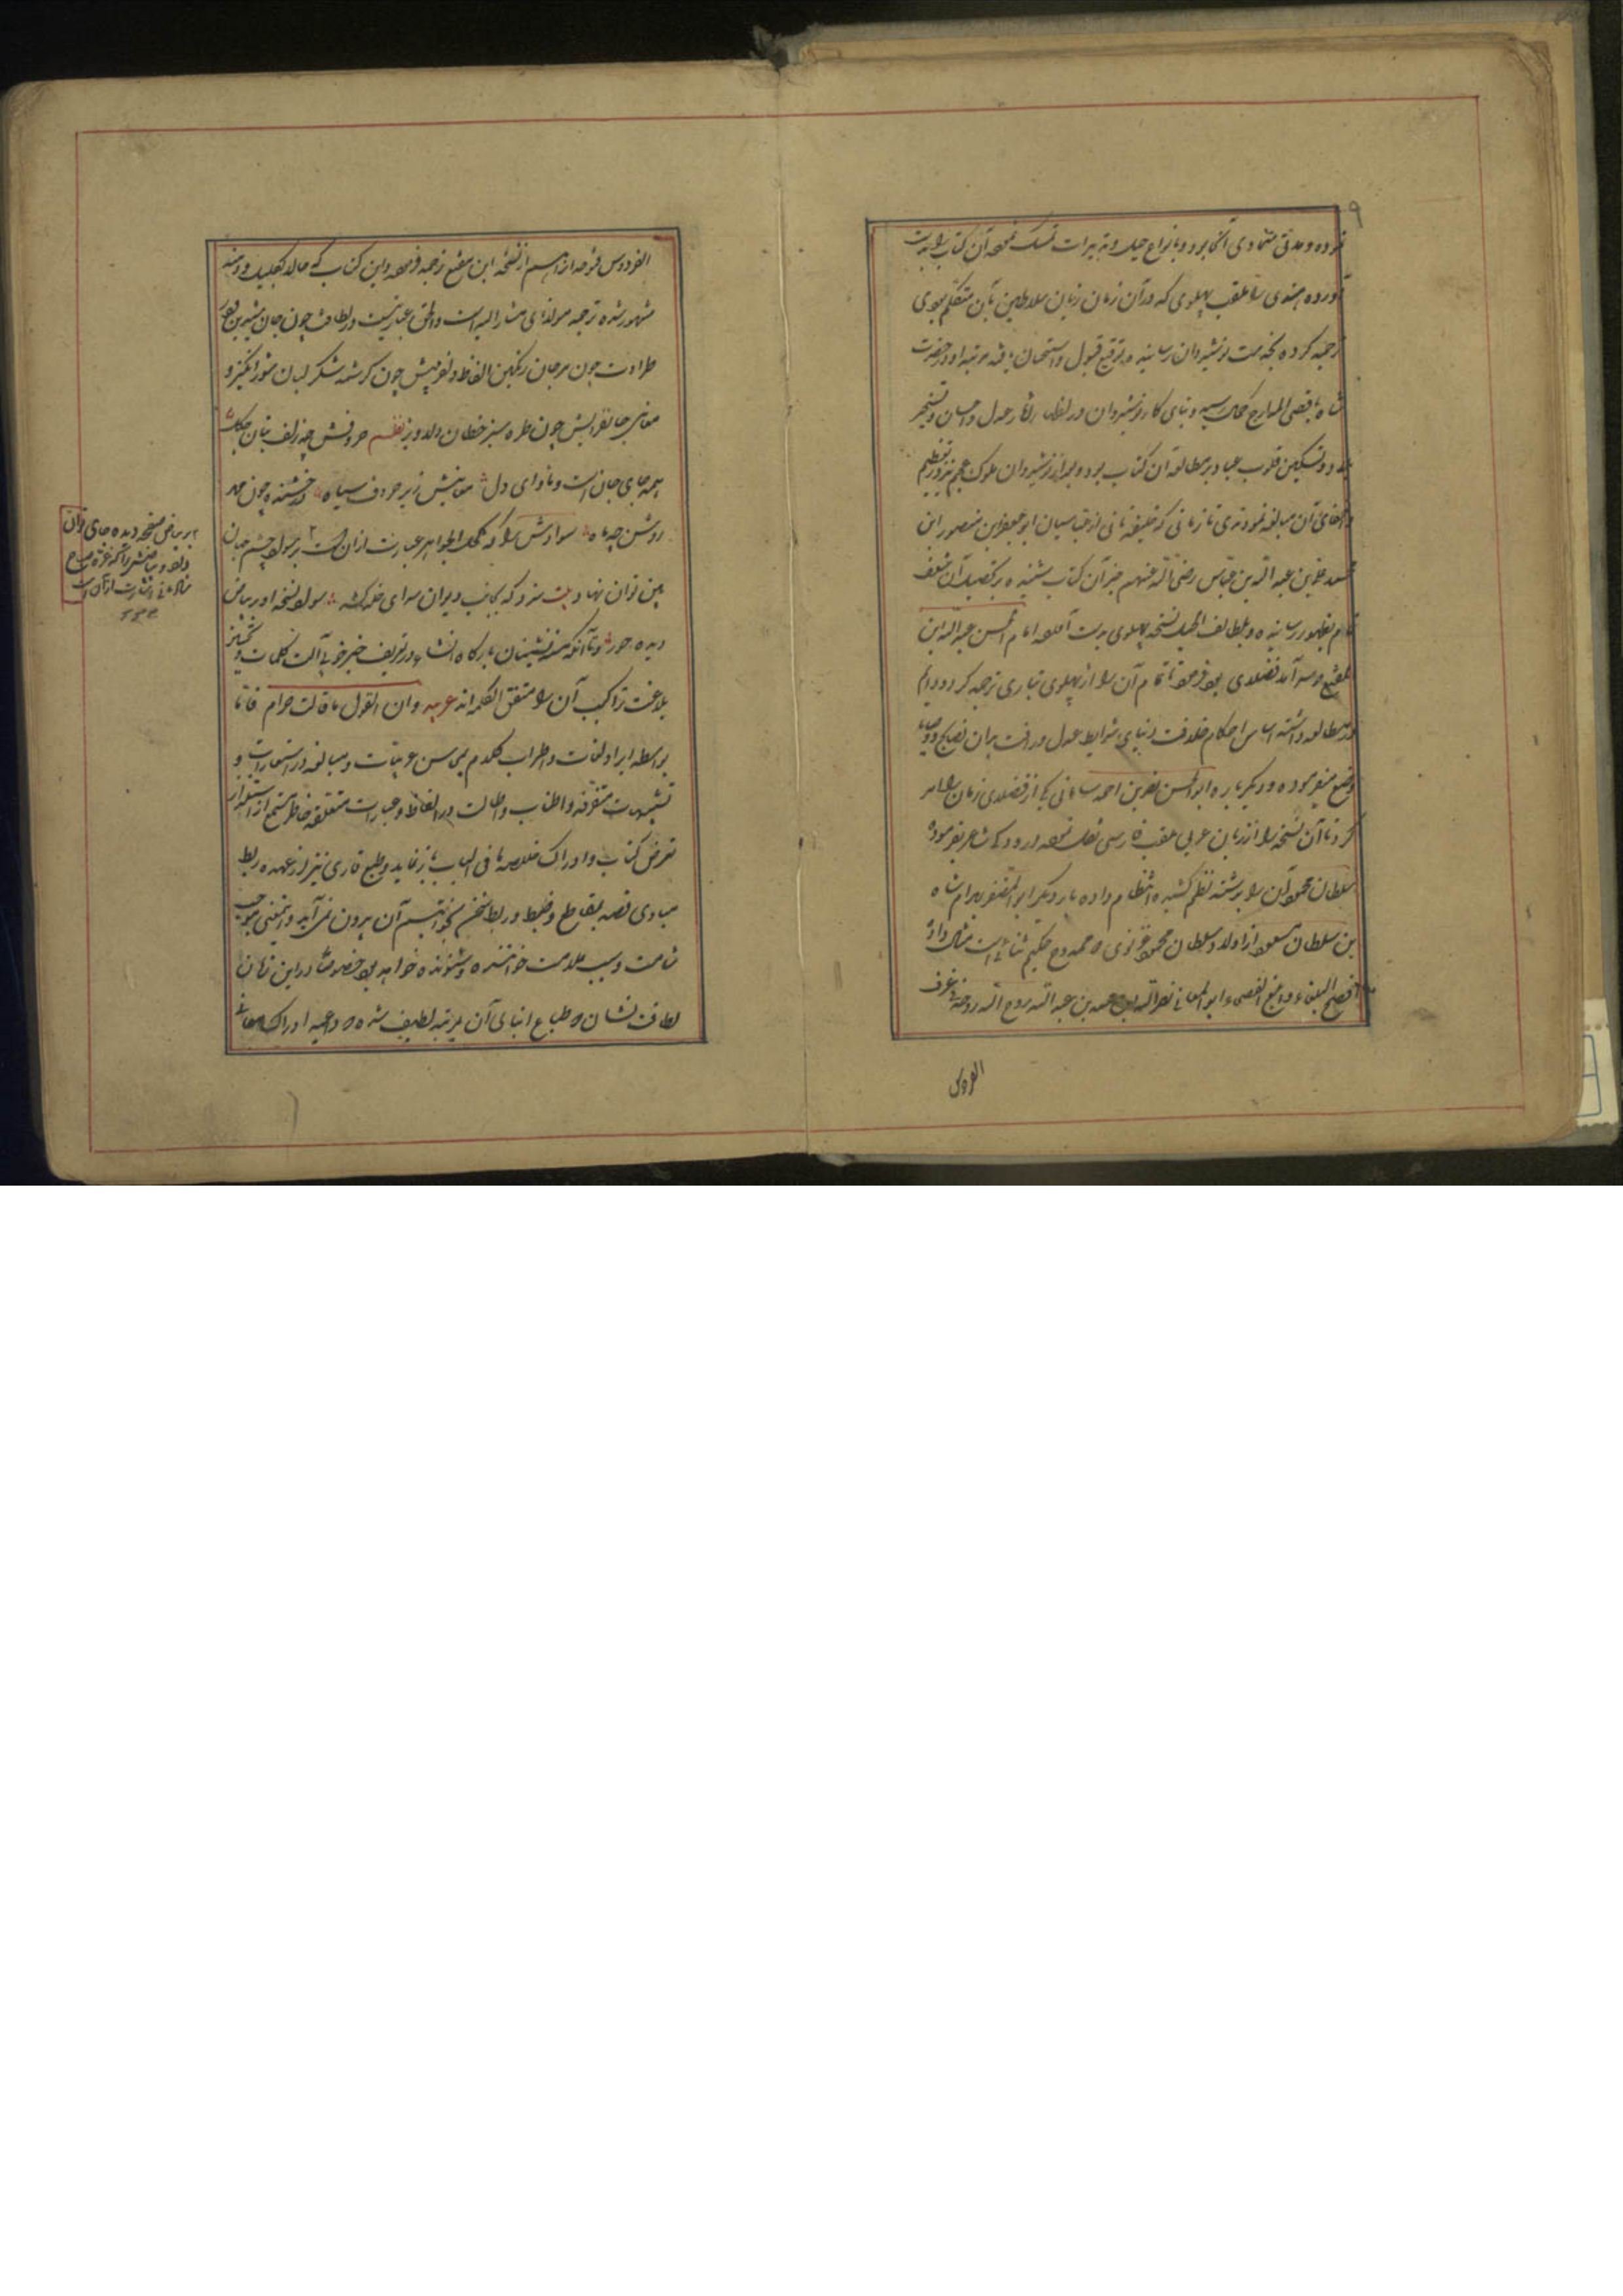 ۹
نموده و مدتی متمادی آنجا بود و بانواع حیل و تدبیرات تمسک نموده آن کتاب را بدست
آورده هندی را بلغت پهلوی که در آن زمان زبان سلاطین بآن متکلم بودی
ترجمه کرده بخدمت نوشیروان رسانیده بتوقیع قبول و استحسان یافته مرتبه او در حضرت
شاه باقصی المدارج رسید و بنای کار نوشیروان در اظهار آثار عدل و احسان و تسخیر
بلاد و تسکین قلوب عباد بر مطالعه آن کتاب بود و بعد از نوشیروان ملوک عجم نیز در تعظیم
و اخفای آن مبالغه نمودندی تا زمانی که خلیفه ثانی از عباسیان ابو جعفر بن منصور ابن
محمد علی بن عبد الله بن عباس رضی الله عنهم خبر آن کتاب شنیده بر تحصیل آن شعف
تمام بظهور رسانیده و بلطائف الحیل نسخه پهلوی بدست آورده امام الحسن عبد الله ابن
المقفع که سر آمد فضلای بود فرمود تا تمام آن را از پهلوی بتازی ترجمه کرد و دایم
در مطالعه داشته اساس احکام خلافت و بنای شرایط عدل و رأفت بران نصایح و وصایا
وضع میفرموده و دیگر باره ابو الحسن نصر بن احمد سامانی یکی از فضلای زمان را امر
کرد تا آن نسخه را از زبان عربی بلغت فارسی نقل نموده و رودکی شاعر بفرموده
سلطان محمود آن را برشته نظم کشیده انتظام داده بار دیگر ابو المظفر بهرام شاه
بن سلطان مسعود از اولاد سلطان محمود غزنوی که ممدوح حکیم سنائی است مثال داد تا
افصح البلغاء و ابلغ الفصحاء ابو المعالی نصر الله بن محمد بن عبد الله روح الله روحه فی غرف
الفردوس
الفردوس فتوحه از هم از نسخه ابن مقفع ترجمه فرموده و این کتاب که حالا بکلیله و دمنه
مشهور شده ترجمه مولانای مشار الیه است و الحق عبارتیست در لطافت چون جان شیرین و در
طراوت چون مرجان رنگین الفاظ دلفریبش چون کرشمه شکر لبان شورانگیز و
معانی جانفزایش چون طره سبز خطان دلاویز نظم حروفش چو زلف بتان چگل
همه جای جان است و ماوای دل معانیش زیر حروف سیاه درخشنده چون مهر
روشن چو ماه سوادش را که کحل الجواهر عبارت از آن است بر سواد چشم جهان
بین توان نهاد بیت سزد که کاتب دیوان سرای خلد کشد سواد نسخه او بر بیاض
دیده حور و با آنکه مسندنشینان بارگاه انشاء در تعریف جزالت کلمات و تحسین
بلاغت تراکیب آن را متفق الکلمه اند عربیه و ان القول ما قالت حذام فاما
بواسطه ایراد لغات و اطراب کلام بمحاسن عربیات و مبالغه در استعارات و
تشبیهات متفرقه و اطناب و اطالت در الفاظ و عبارات مغلقه خاطر مستمع از التذاذ
بغرض کتاب و ادراک خلاصه ما فی الباب باز نماید و طبع قاری نیز از عهده ربط
مبادی قصه بمقاطع و ضبط و ربط سخن بخواتیم آن بیرون نمی آید و اینمعنی موجب
شامت و سبب ملامت خواننده و شنونده خواهد بود خصوصا در این زمان
لطافت نشان که طباع ابنای آن بمرتبه لطیف شده که داعیه ادراک معانی
بر بیاض صفحه دیده جای توان
داد و بیاضش را که غره صباح